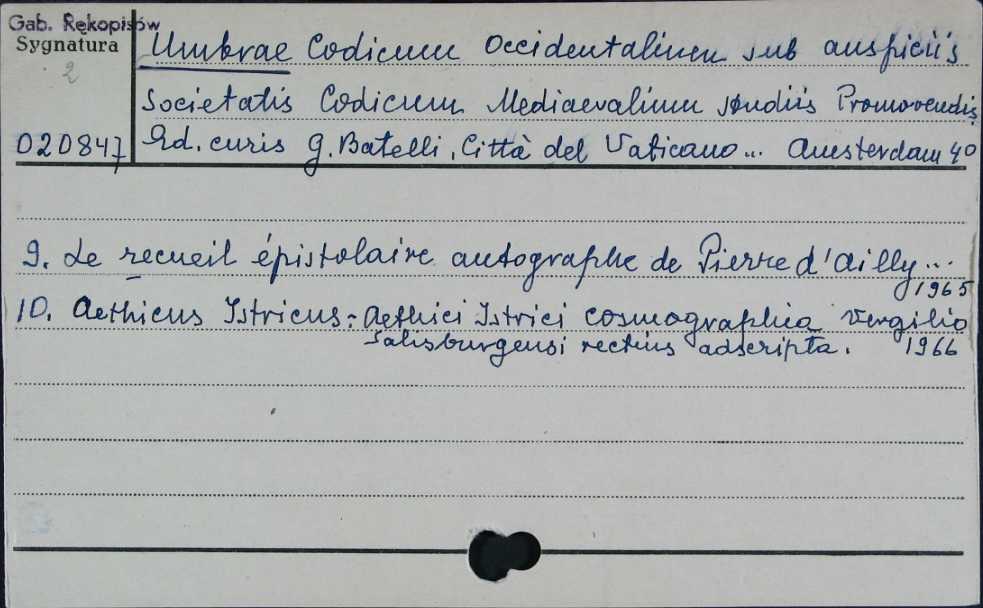 Gab. Rękopisów
Sygnatura
2
020847
Umbrae Codicum Occidentalium sub auspiciis
Societatis Codicum Mediaevalium studiis Promovendis.
Ed. curis G. Batelli, Città del Vaticano... Amsterdam 4º
9. Le recueil épistolaire autographe de Pierre d'Ailly...
1965
10. Aethicus Istricus: Aethici Istrici cosmographia Vergilio
Salisburgensi rectius adscripta. 1966